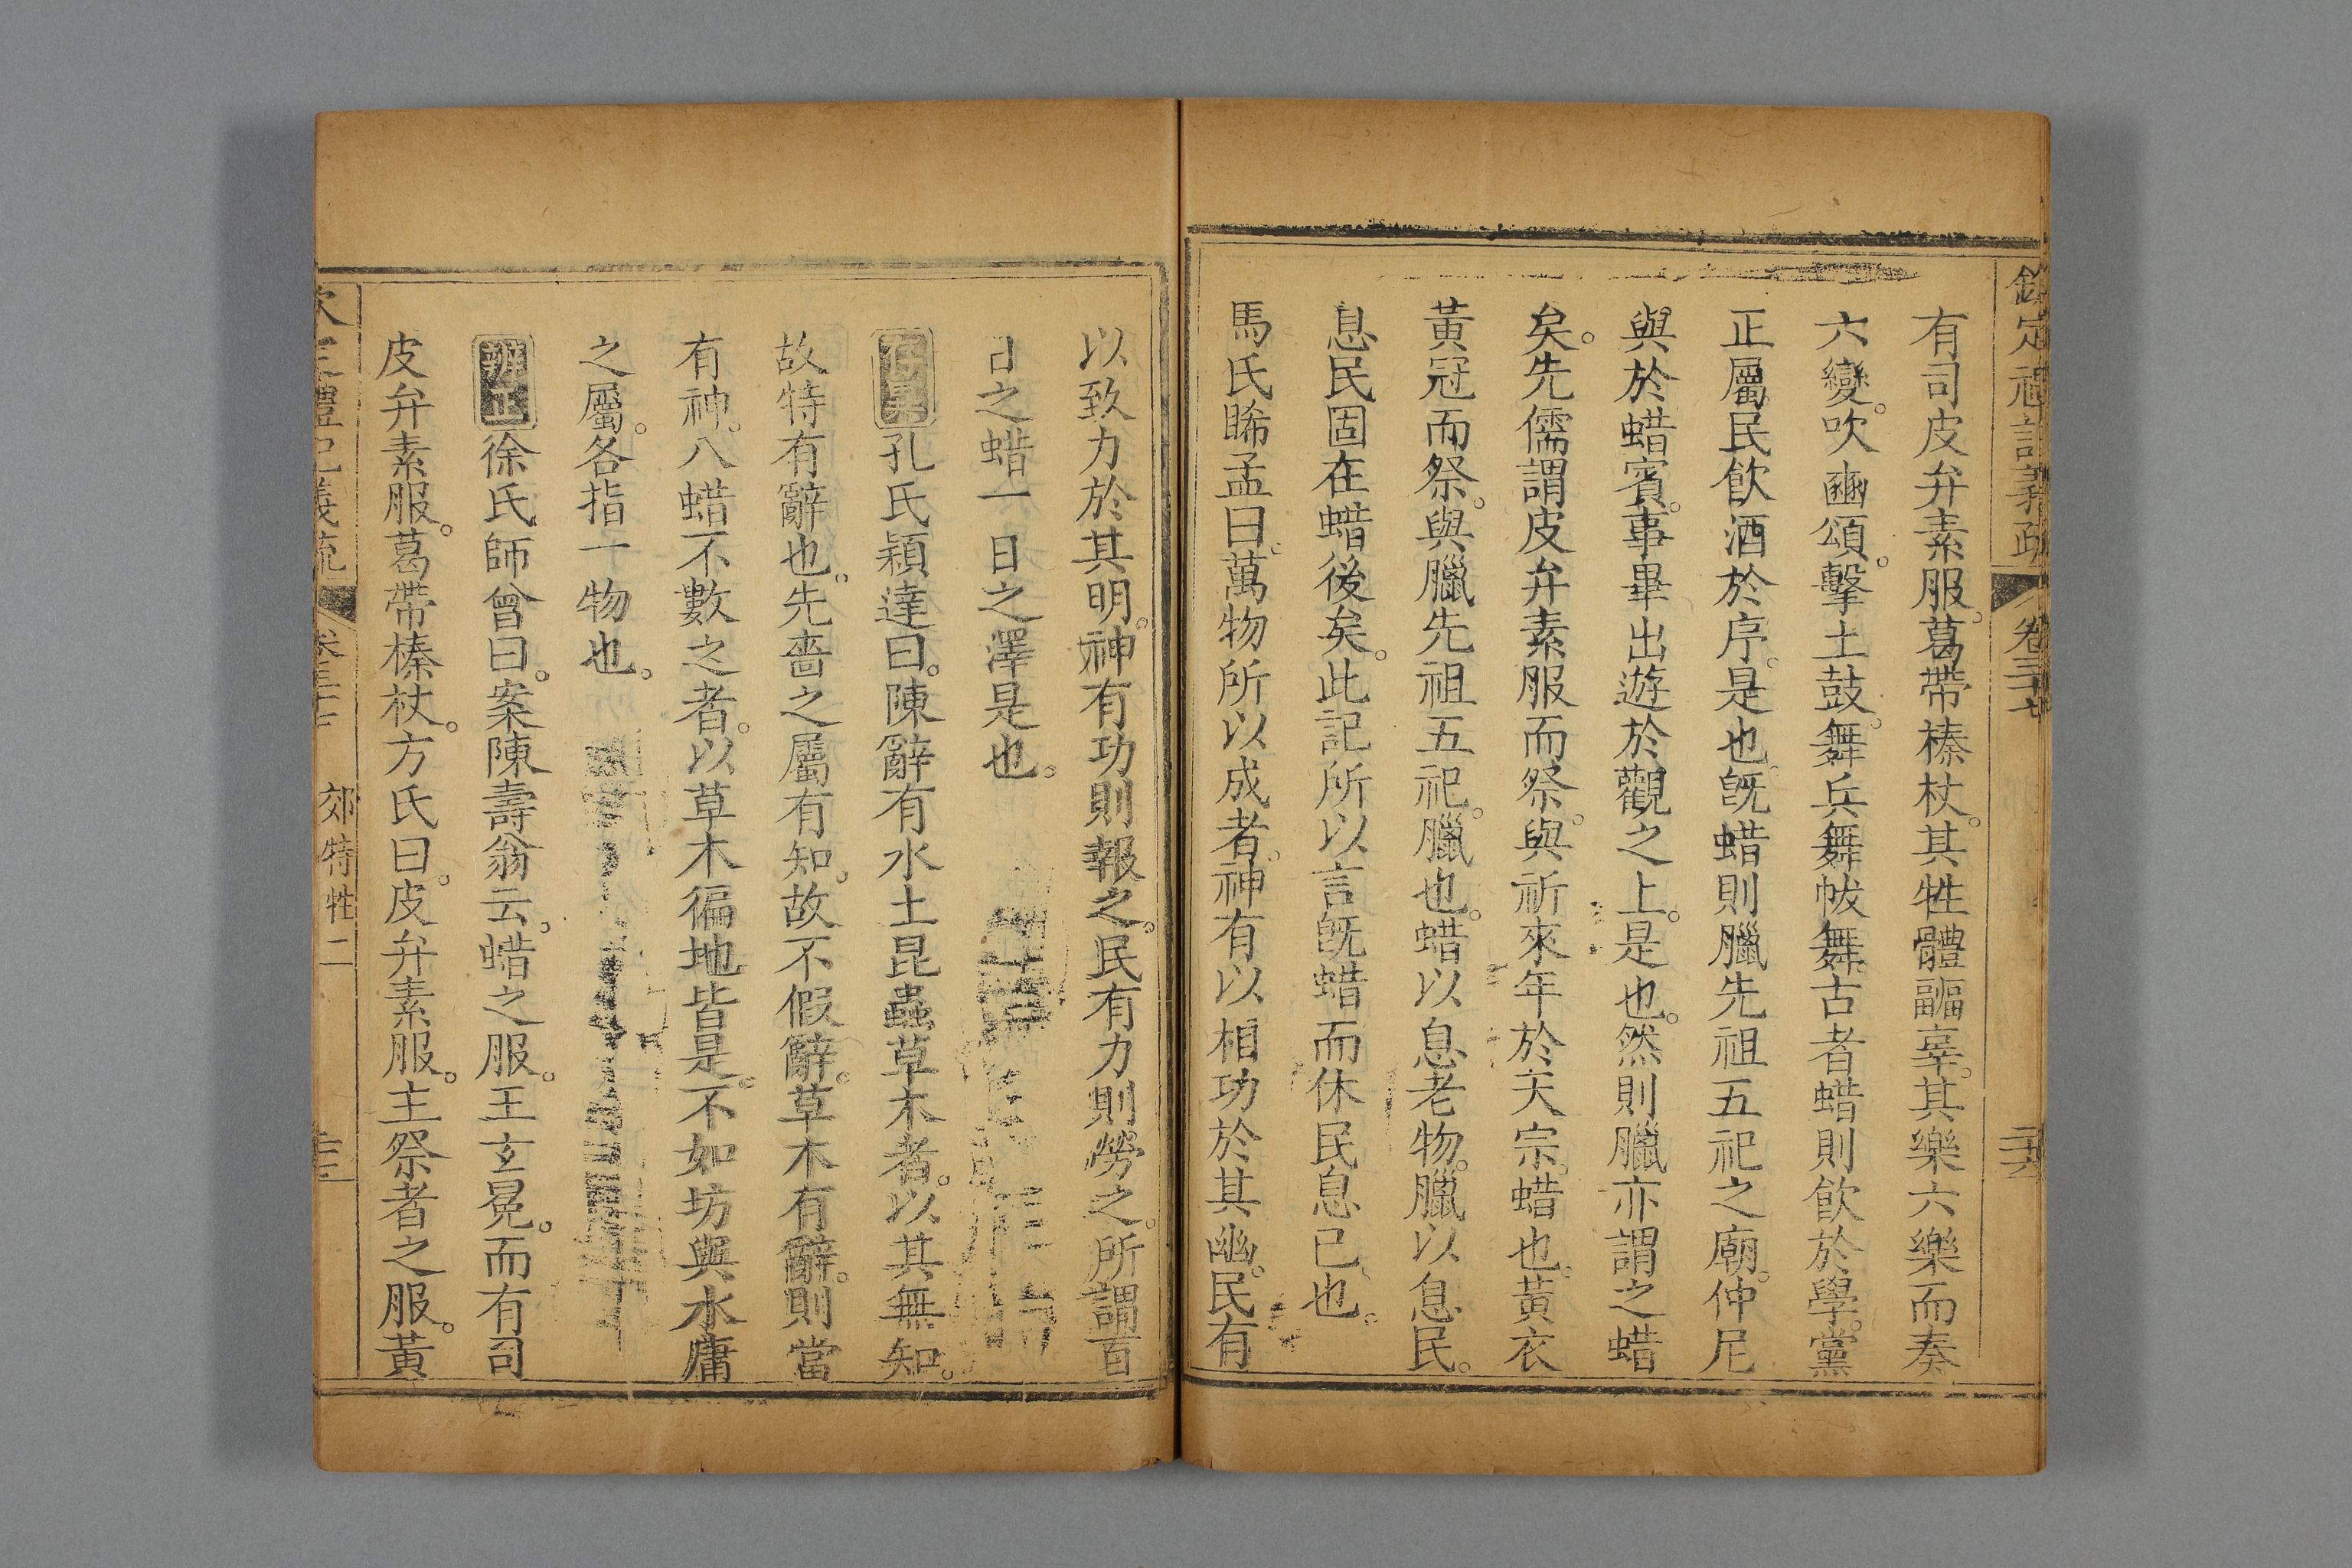 欽定禮記義疏 卷三十七 二六
有司皮弁素服。葛帶榛杖。其牲體疈辜。其樂六樂而奏
六變。吹豳頌。擊土鼓。舞兵舞帗舞。古者蜡則飲於學。黨
正屬民飲酒於序。是也。旣蜡則臘先祖五祀之廟。仲尼
與於蜡賓。事畢出遊於觀之上。是也。然則臘亦謂之蜡
矣。先儒謂皮弁素服而祭。與祈來年於天宗。蜡也。黃衣
黃冠而祭。與臘先祖五祀。臘也。蜡以息老物。臘以息民。
息民固在蜡後矣。此記所以言旣蜡而休民息已也。
馬氏睎孟曰。萬物所以成者。神有以相功於其幽。民有
以致力於其明。神有功則報之。民有力則勞之。所謂百
日之蜡。一日之澤是也。
孔氏穎達曰。陳辭有水土昆蟲草木者。以其無知。
故特有辭也。先嗇之屬有知。故不假辭。草木有辭。則當
有神。八蜡不數之者。以草木徧地皆是。不如坊與水庸
之屬。各指一物也。
辨正 徐氏師曾曰。案陳壽翁云。蜡之服。王玄冕。而有司
皮弁素服。葛帶榛杖。方氏曰。皮弁素服。主祭者之服。黃
禮記義疏 卷三十七 郊特牲二